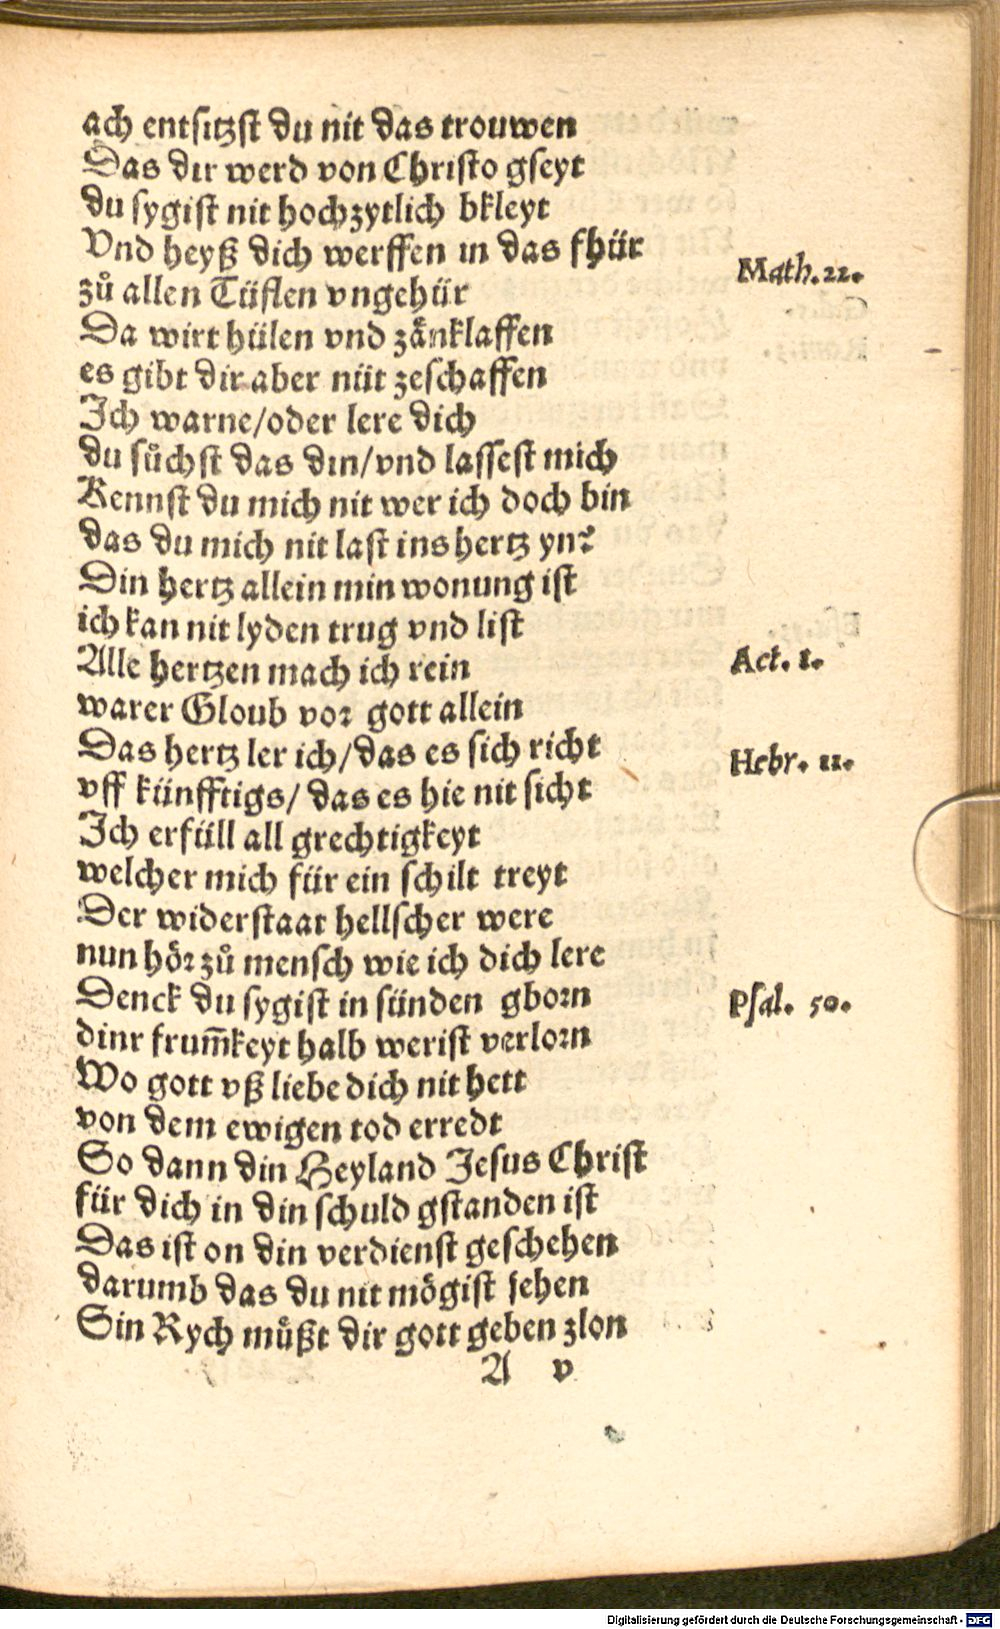 ach entsitzst du nit das trouwen
Das dir werd von Christo gseyt
du sygist nit hochzytlich bkleyt
Vnd heyß dich werffen in das fhür
Math. 22.
zů allen Tüflen vngehür
Da wirt hülen vnd zänklaffen
es gibt dir aber nüt zeschaffen
Ich warne/oder lere dich
du sůchst das din/vnd lassest mich
Kennst du mich nit wer ich doch bin
das du mich nit last ins hertz yn?
Din hertz allein min wonung ist
ich kan nit lyden trug vnd list
Alle hertzen mach ich rein
Act. 1.
warer Gloub vor gott allein
Das hertz ler ich/das es sich richt
Hebr. 11.
vff künfftigs/ das es hie nit sicht
Ich erfüll all grechtigkeyt
welcher mich für ein schilt treyt
Der widerstaat hellscher were
nun hör zů mensch wie ich dich lere
Denck du sygist in sünden gborn
Psal. 50.
dinr frum̄keyt halb werist verlorn
Wo gott vß liebe dich nit hett
von dem ewigen tod erredt
So dann din Heyland Jesus Christ
für dich in din schuld gstanden ist
Das ist on din verdienst geschehen
darumb das du nit mögist jehen
Sin Rych müßt dir gott geben zlon
A v
Digitalisierung gefördert durch die Deutsche Forschungsgemeinschaft - DFG